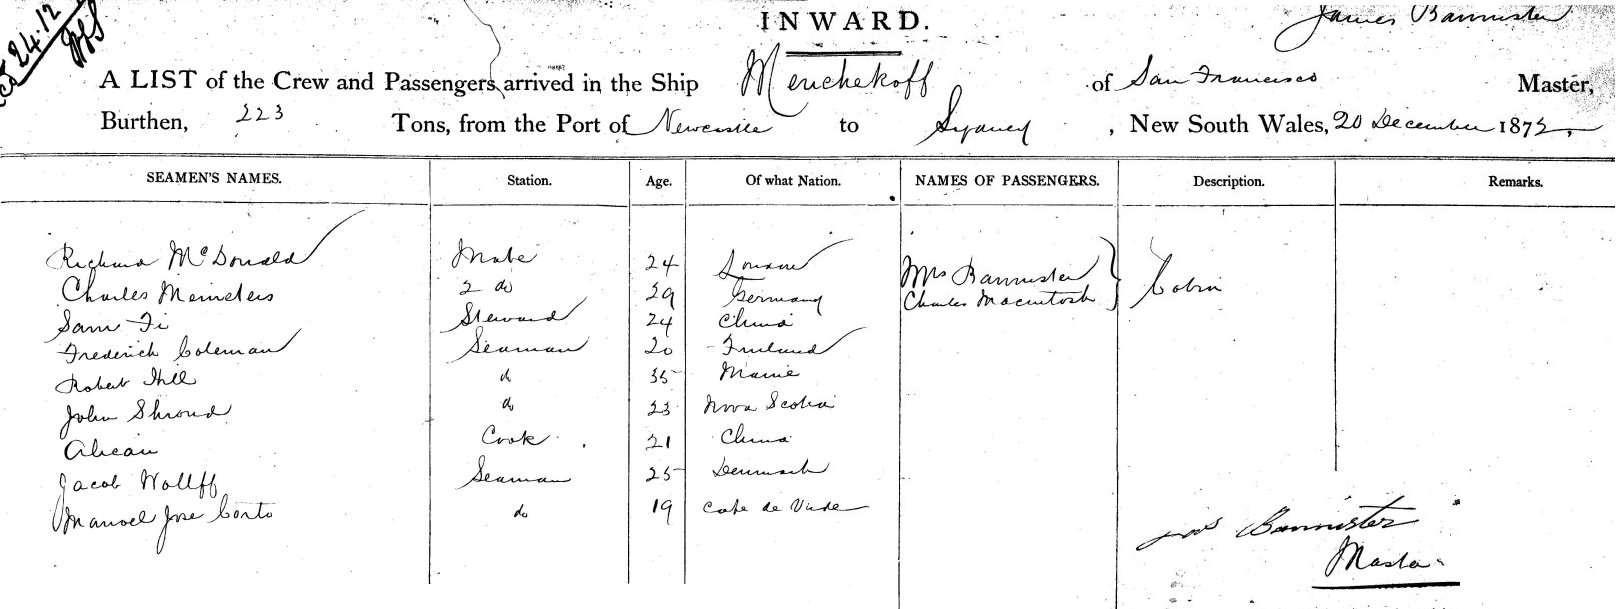 24.12
INWARD.
James Bannister
A LIST of the Crew and Passengers arrived in the Ship Menchekoff of San Francisco Master,
Burthen, 223 Tons, from the Port of Newcastle to Sydney, New South Wales, 20 December 1872,
SEAMEN'S NAMES. Station. Age. Of what Nation. NAMES OF PASSENGERS. Description. Remarks.
Richard McDonald Mate 24
Mrs Bannister
Charles Meinsters 2 do 29 Germany
Charles Macintosh Cabin
Sam Fi Steward 24 China
Frederick Coleman Seaman 20 Finland
Robert Hill do 35 Maine
John Shroud do 23 Nova Scotia
Ahcan Cook 21 China
Jacob Wolff Seaman 25 Denmark
Manoel Jose Corto do 19 Cape de Verde
Jas Bannister
Master